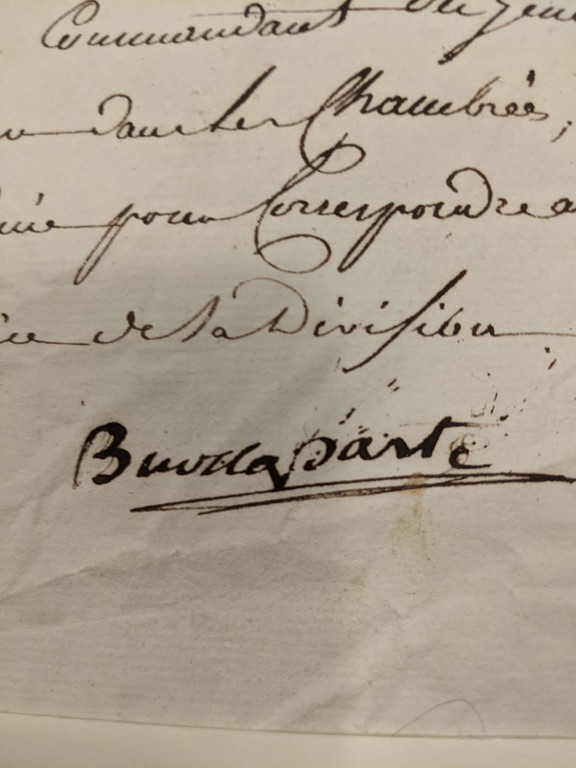 Commandant du
dans les Chambrées,
pour Correspondre a
de la Division
Buonaparte